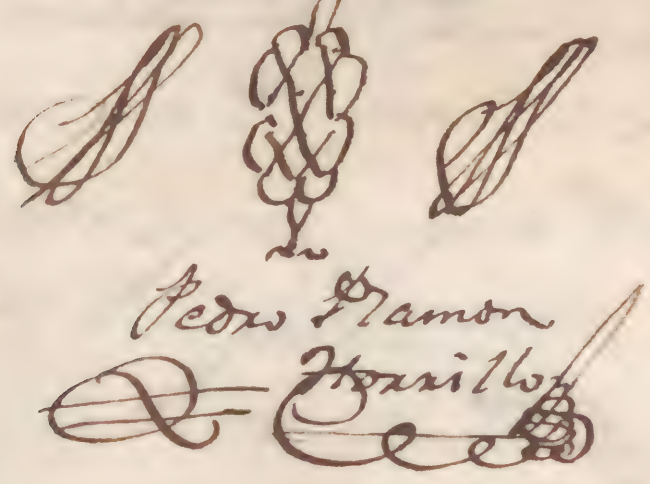 Pedro Ramon
Horrillo